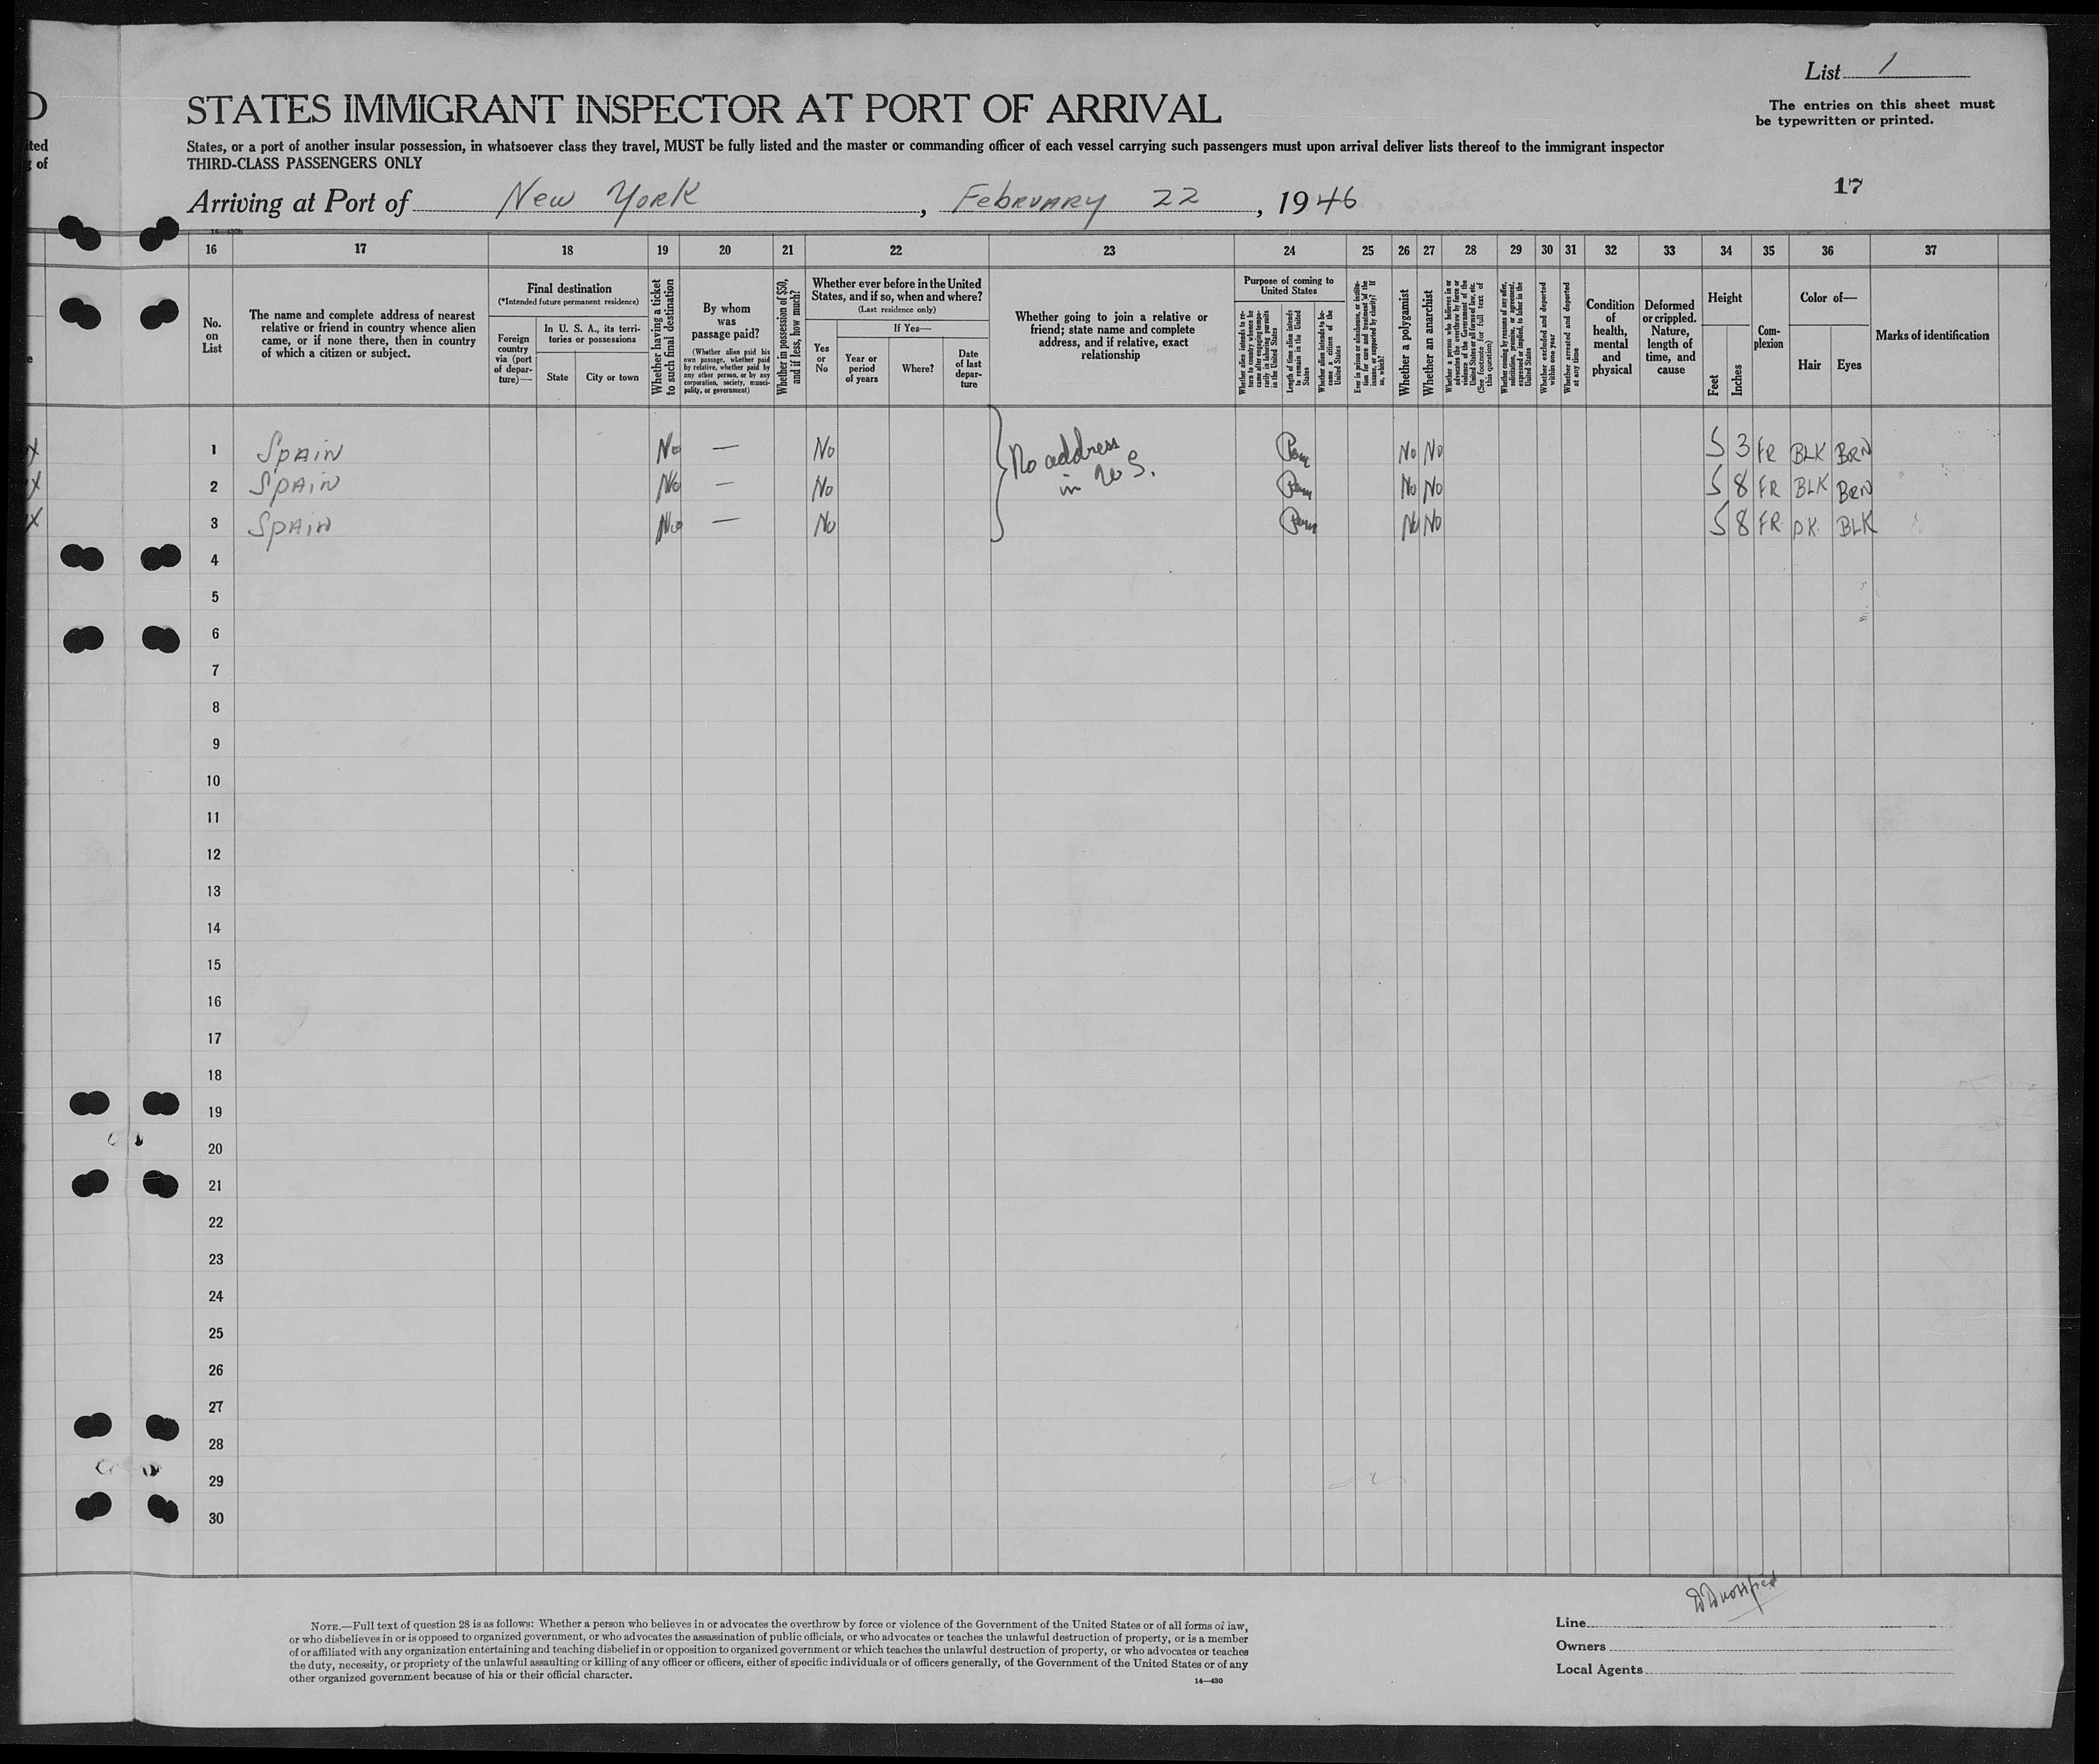 List 1
The entries on this sheet must
be typewritten or printed.
STATES IMMIGRANT INSPECTOR AT PORT OF ARRIVAL
States, or a port of another insular possession, in whatsoever class they travel, MUST be fully listed and the master or commanding officer of each vessel carrying such passengers must upon arrival deliver lists thereof to the immigrant inspector
THIRD-CLASS PASSENGERS ONLY
17
Arriving at Port of New York, February 22, 1946
16 17 18 19 20 21 22 23 24 25 26 27 28 29 30 31 32 33 34 35 36 37
No.
on
List
The name and complete address of nearest
relative or friend in country whence alien
came, or if none there, then in country
of which a citizen or subject.
Final destination
(*Intended future permanent residence)
Foreign
country
via (port
of depar-
ture)—
In U. S. A., its terri-
tories or possessions
State
City or town
Whether having a ticket
to such final destination
By whom
was
passage paid?
(Whether alien paid his
own passage, whether paid
by relative, whether paid by
any other person, or by any
corporation, society, munici-
pality, or government)
Whether in possession of $50,
and if less, how much?
Whether ever before in the United
States, and if so, when and where?
(Last residence only)
Yes
or
No
If Yes—
Year or
period
of years
Where?
Date
of last
depar-
ture
Whether going to join a relative or
friend; state name and complete
address, and if relative, exact
relationship
Purpose of coming to
United States
Whether alien intends to re-
turn to country whence he
came after engaging tempo-
rarily in laboring pursuits
in the United States
Length of time alien intends
to remain in the United
States
Whether alien intends to be-
come a citizen of the
United States
Ever in prison or almshouse, or institu-
tion for care and treatment of the
insane, or supported by charity? If
so, which?
Whether a polygamist
Whether an anarchist
Whether a person who believes in or
advocates the overthrow by force or
violence of the Government of the
United States or all forms of law, etc.
(See footnote for full text of
this question)
Whether coming by reasons of any offer,
solicitation, promise, or agreement,
expressed or implied, to labor in the
United States
Whether excluded and deported
within one year
Whether arrested and deported
at any time
Condition
of
health,
mental
and
physical
Deformed
or crippled.
Nature,
length of
time, and
cause
Height
Feet
Inches
Com-
plexion
Color of—
Hair
Eyes
Marks of identification
1 Spain No — No No address Perm No No 5 3 FR BLK BRN
2 Spain No — No in U S. Perm No No 5 8 FR BLK BRN
3 Spain No — No Perm No No 5 8 FR DK BLK
4
5
6
7
8
9
10
11
12
13
14
15
16
17
18
19
20
21
22
23
24
25
26
27
28
29
30
NOTE.—Full text of question 28 is as follows: Whether a person who believes in or advocates the overthrow by force or violence of the Government of the United States or of all forms of law,
or who disbelieves in or is opposed to organized government, or who advocates the assassination of public officials, or who advocates or teaches the unlawful destruction of property, or is a member
of or affiliated with any organization entertaining and teaching disbelief in or opposition to organized government or which teaches the unlawful destruction of property, or who advocates or teaches
the duty, necessity, or propriety of the unlawful assaulting or killing of any officer or officers, either of specific individuals or of officers generally, of the Government of the United States or of any
other organized government because of his or their official character.
14—430
notified
Line
Owners
Local Agents